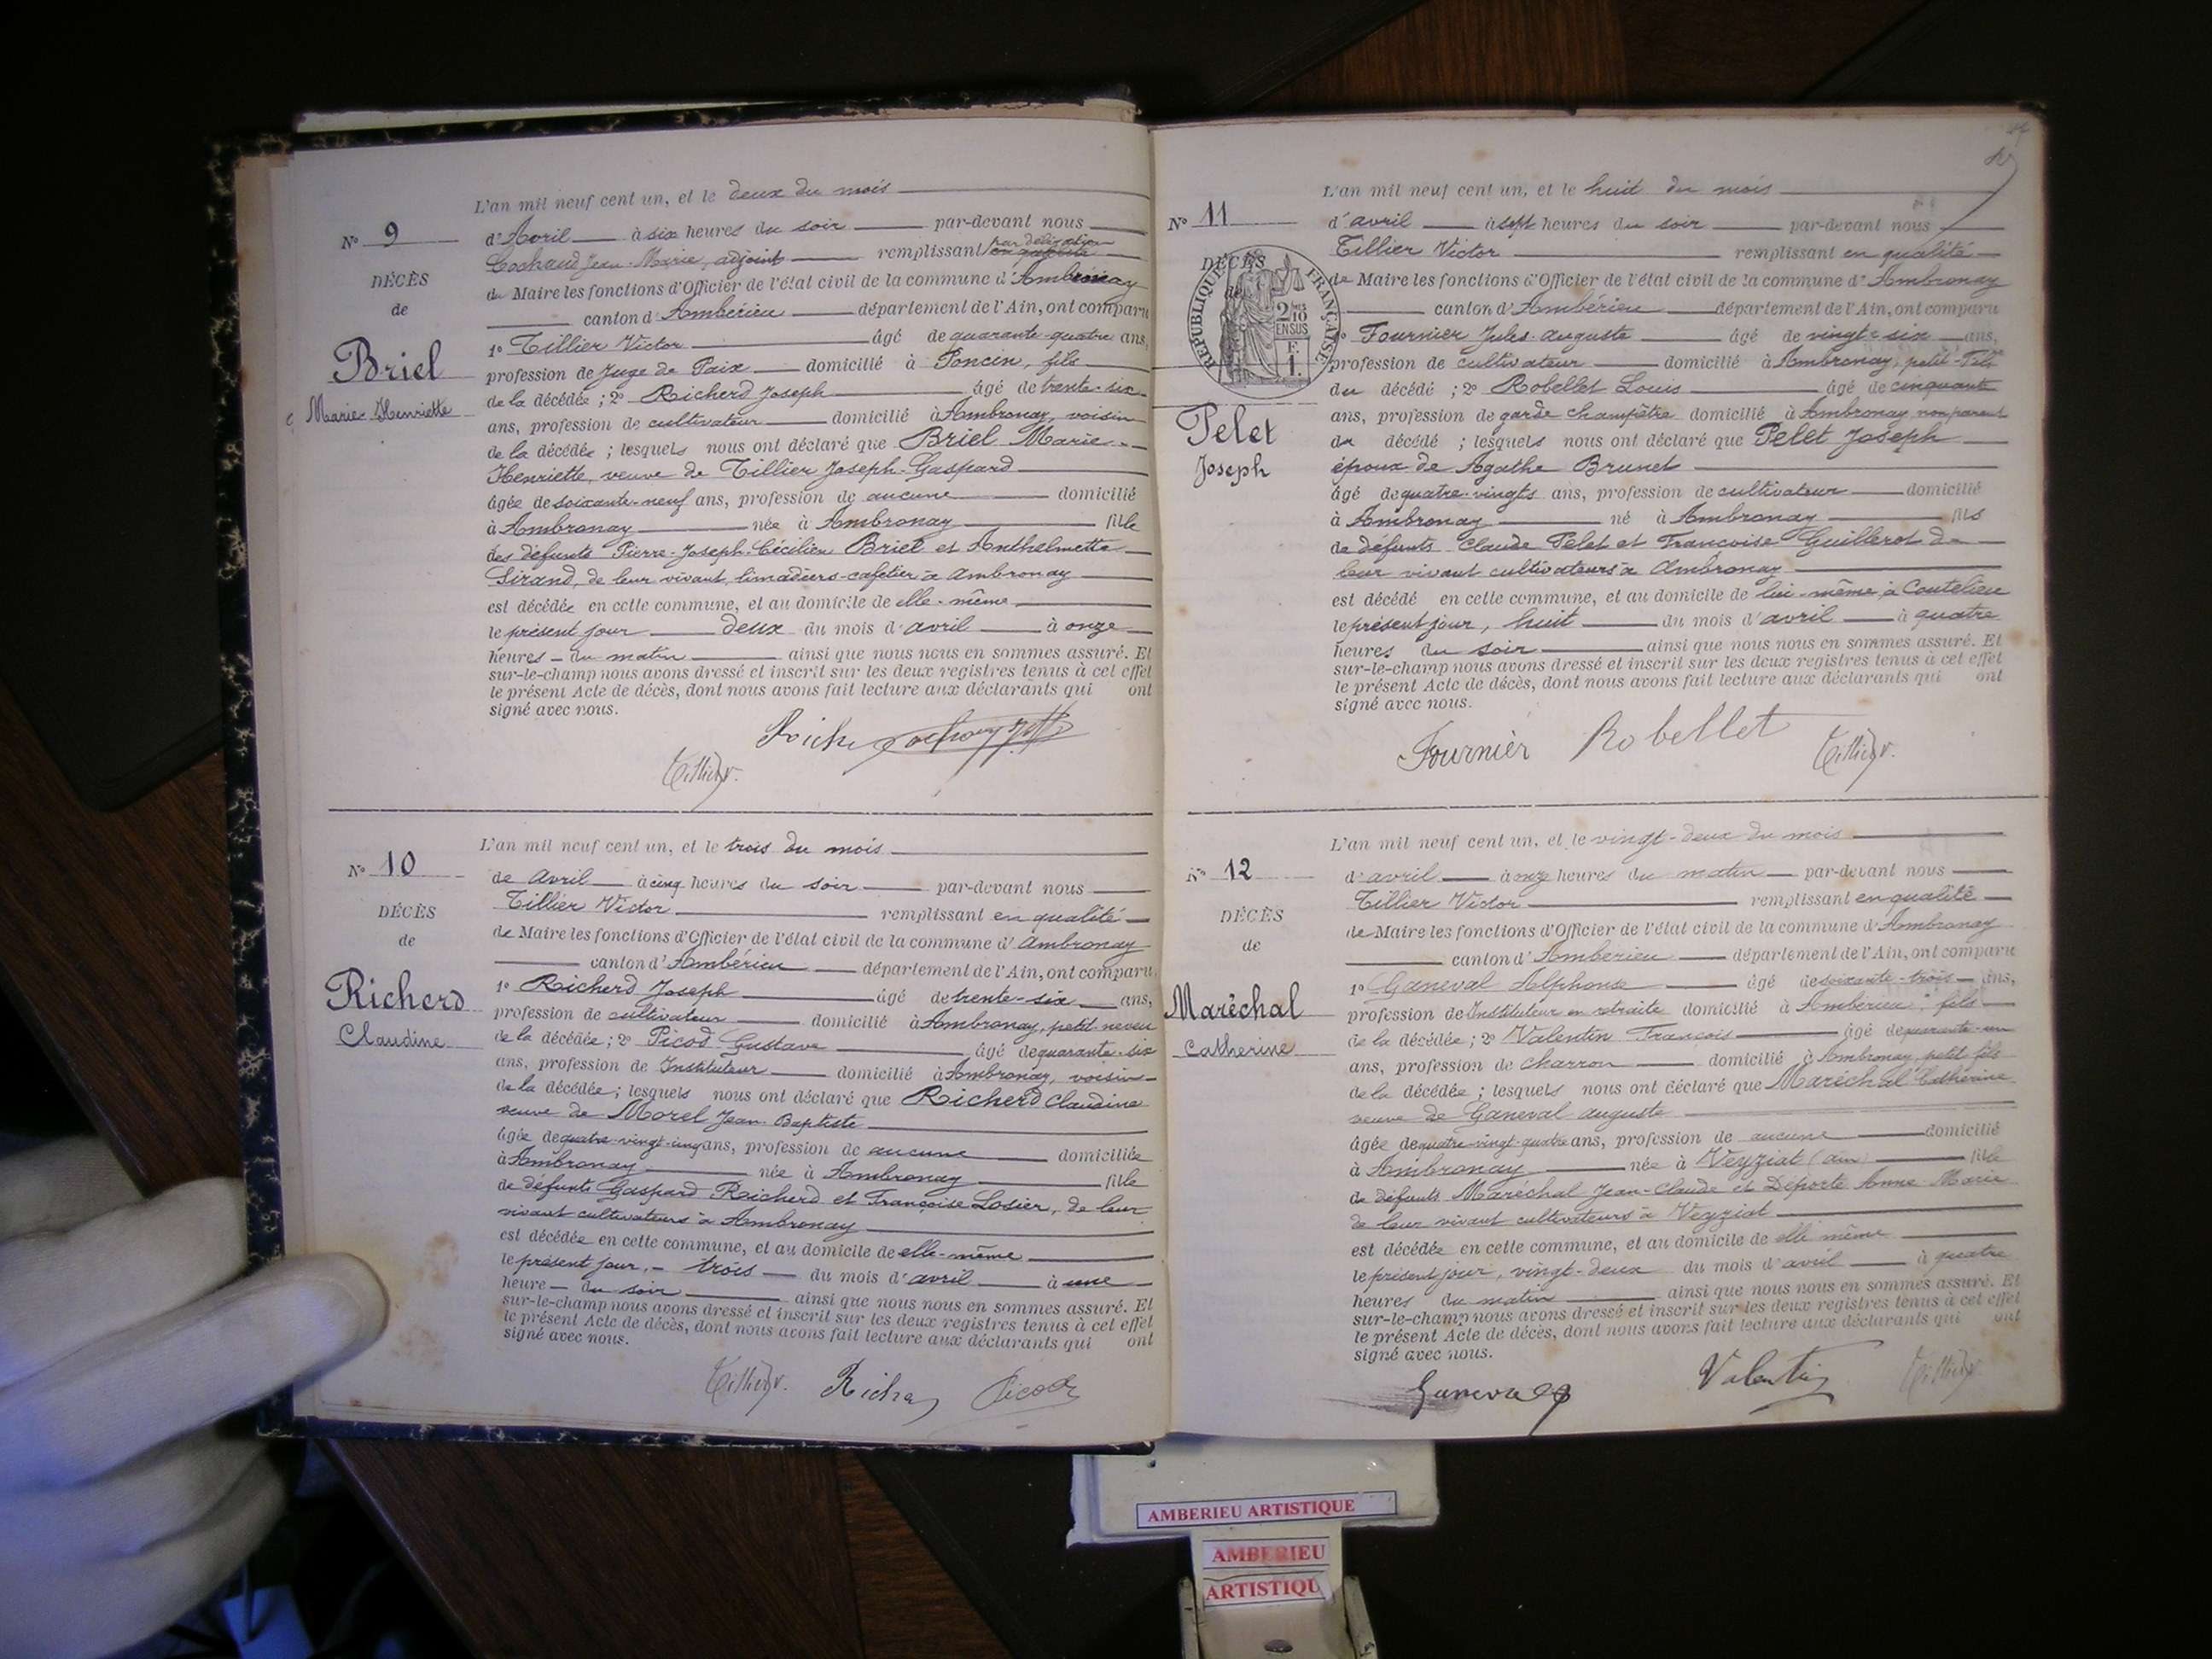 N° 9
DÉCÈS
de
Briel
Marie-Henriette
L'an mil neuf cent un, et le deux du mois
d'Avril à six heures du soir par-devant nous
Cochaud Jean-Marie, adjoint remplissant par délégation
de Maire les fonctions d'Officier de l'état civil de la commune d'Ambronay
canton d'Ambérieu département de l'Ain, ont comparu
1° Tillier Victor âgé de quarante-quatre ans,
profession de Juge de Paix domicilié à Poncin, fils
de la décédée ; 2° Richerd Joseph âgé de trente-six
ans, profession de cultivateur domicilié à Ambronay, voisin
de la décédée ; lesquels nous ont déclaré que Briel Marie-
Henriette, veuve de Tillier Joseph-Gaspard
âgée de soixante-neuf ans, profession de aucune domicilié
à Ambronay née à Ambronay fille
des défunts Pierre-Joseph-Cécilien Briel et Anthelmette
Sirand, de leur vivant limadiers-cafetier à Ambronay
est décédée en cette commune, et au domicile de elle-même
le présent jour deux du mois d'avril à onze
heures du matin ainsi que nous nous en sommes assuré. Et
sur-le-champ nous avons dressé et inscrit sur les deux registres tenus à cet effet
le présent Acte de décès, dont nous avons fait lecture aux déclarants qui ont
signé avec nous.
Tillier V.
N° 10
DÉCÈS
de
Richerd
Claudine
L'an mil neuf cent un, et le trois du mois
de avril à cinq heures du soir par-devant nous
Tillier Victor remplissant en qualité
de Maire les fonctions d'Officier de l'état civil de la commune d'Ambronay
canton d'Ambérieu département de l'Ain, ont comparu
1° Richerd Joseph âgé de trente-six ans,
profession de cultivateur domicilié à Ambronay, petit neveu
de la décédée ; 2° Picod Gustave âgé de quarante-six
ans, profession de Instituteur domicilié à Ambronay, voisin
de la décédée ; lesquels nous ont déclaré que Richerd Claudine
veuve de Morel Jean-Baptiste
âgée de quatre-vingt-un ans, profession de aucune domiciliée
à Ambronay née à Ambronay fille
de défunts Gaspard Richerd et Françoise Losier, de leur
vivant cultivateurs à Ambronay
est décédée en cette commune, et au domicile de elle-même
le présent jour, trois du mois d'avril à une
heure du soir ainsi que nous nous en sommes assuré. Et
sur-le-champ nous avons dressé et inscrit sur les deux registres tenus à cet effet
le présent Acte de décès, dont nous avons fait lecture aux déclarants qui ont
signé avec nous.
Tillier V. Richerd Picod
N° 11
DÉCÈS
de
RÉPUBLIQUE FRANÇAISE
2/10
EN SUS
Pelet
Joseph
L'an mil neuf cent un, et le huit du mois
d'avril à sept heures du soir par-devant nous
Tillier Victor remplissant en qualité
de Maire les fonctions d'Officier de l'état civil de la commune d'Ambronay
canton d'Ambérieu département de l'Ain, ont comparu
1° Fournier Jules-Auguste âgé de vingt-six ans,
profession de cultivateur domicilié à Ambronay, petit-fils
du décédé ; 2° Robellet Louis âgé de cinquante
ans, profession de garde champêtre domicilié à Ambronay, non parent
du décédé ; lesquels nous ont déclaré que Pelet Joseph
époux de Agathe Brunet
âgé de quatre-vingts ans, profession de cultivateur domicilié
à Ambronay né à Ambronay fils
de défunts Claude Pelet et Françoise Guillerot de
leur vivant cultivateurs à Ambronay
est décédé en cette commune, et au domicile de lui-même à Coutelieu
le présent jour, huit du mois d'avril à quatre
heures du soir ainsi que nous nous en sommes assuré. Et
sur-le-champ nous avons dressé et inscrit sur les deux registres tenus à cet effet
le présent Acte de décès, dont nous avons fait lecture aux déclarants qui ont
signé avec nous.
Fournier Robellet Tillier V.
N° 12
DÉCÈS
de
Maréchal
Catherine
L'an mil neuf cent un, et le vingt-deux du mois
d'avril à onze heures du matin par-devant nous
Tillier Victor remplissant en qualité
de Maire les fonctions d'Officier de l'état civil de la commune d'Ambronay
canton d'Ambérieu département de l'Ain, ont comparu
1° Ganeval Alphonse âgé de soixante-trois ans,
profession de Instituteur en retraite domicilié à Ambérieu, fils
de la décédée ; 2° Valentin François âgé de quarante-un
ans, profession de charron domicilié à Ambronay, petit fils
de la décédée ; lesquels nous ont déclaré que Maréchal Catherine
veuve de Ganeval Auguste
âgée de quatre-vingt-quatre ans, profession de aucune domicilié
à Ambronay née à Veyziat (ain) fille
de défunts Maréchal Jean-Claude et Déporte Anne Marie
de leur vivant cultivateurs à Veyziat
est décédée en cette commune, et au domicile de elle même
le présent jour, vingt-deux du mois d'avril à quatre
heures du matin ainsi que nous nous en sommes assuré. Et
sur-le-champ nous avons dressé et inscrit sur les deux registres tenus à cet effet
le présent Acte de décès, dont nous avons fait lecture aux déclarants qui ont
signé avec nous.
Ganeval Valentin Tillier V.
AMBERIEU ARTISTIQUE
AMBERIEU
ARTISTIQU